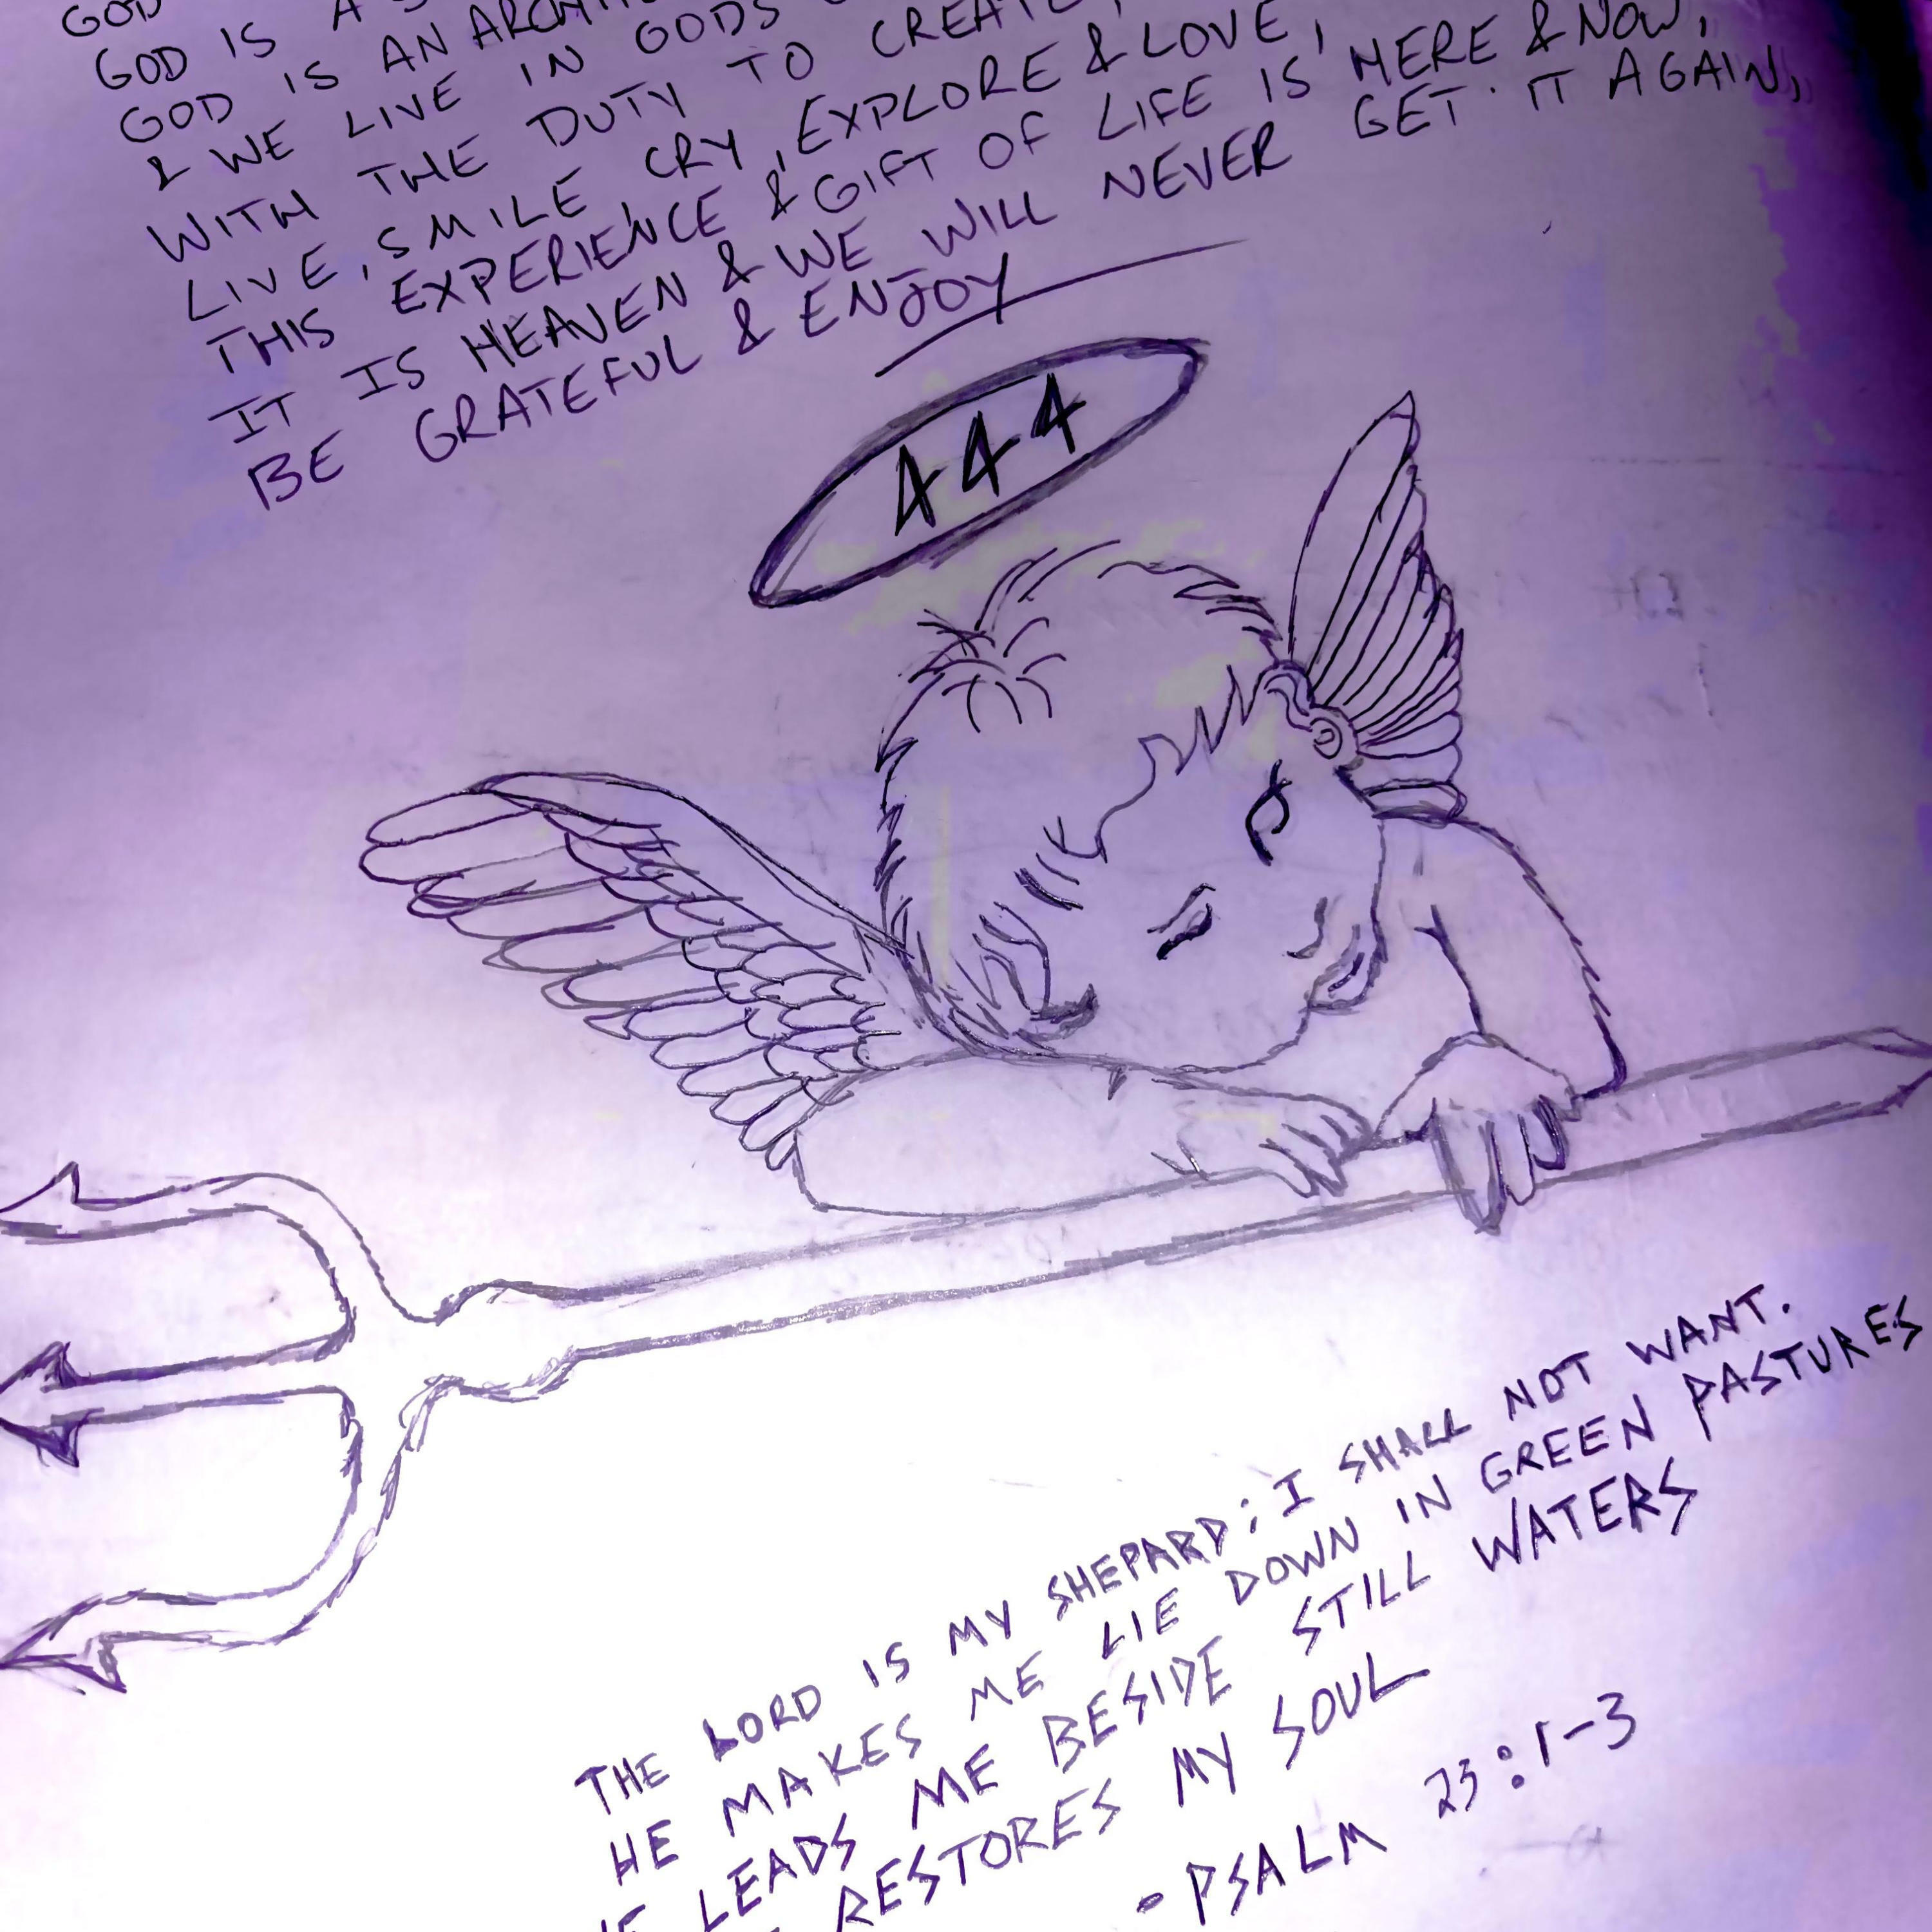 GOD
GOD IS A
GOD IS AN
& WE LIVE IN GODS
WITH THE DUTY TO
LIVE, SMILE CRY, EXPLORE & LOVE,
THIS EXPERIENCE & GIFT OF LIFE IS HERE & NOW,
IT IS HEAVEN & WE WILL NEVER GET IT AGAIN,
BE GRATEFUL & ENJOY
444
THE LORD IS MY SHEPARD; I SHALL NOT WANT.
HE MAKES ME LIE DOWN IN GREEN PASTURES
LEADS ME BESIDE STILL WATERS
RESTORES MY SOUL
- PSALM 23:1-3